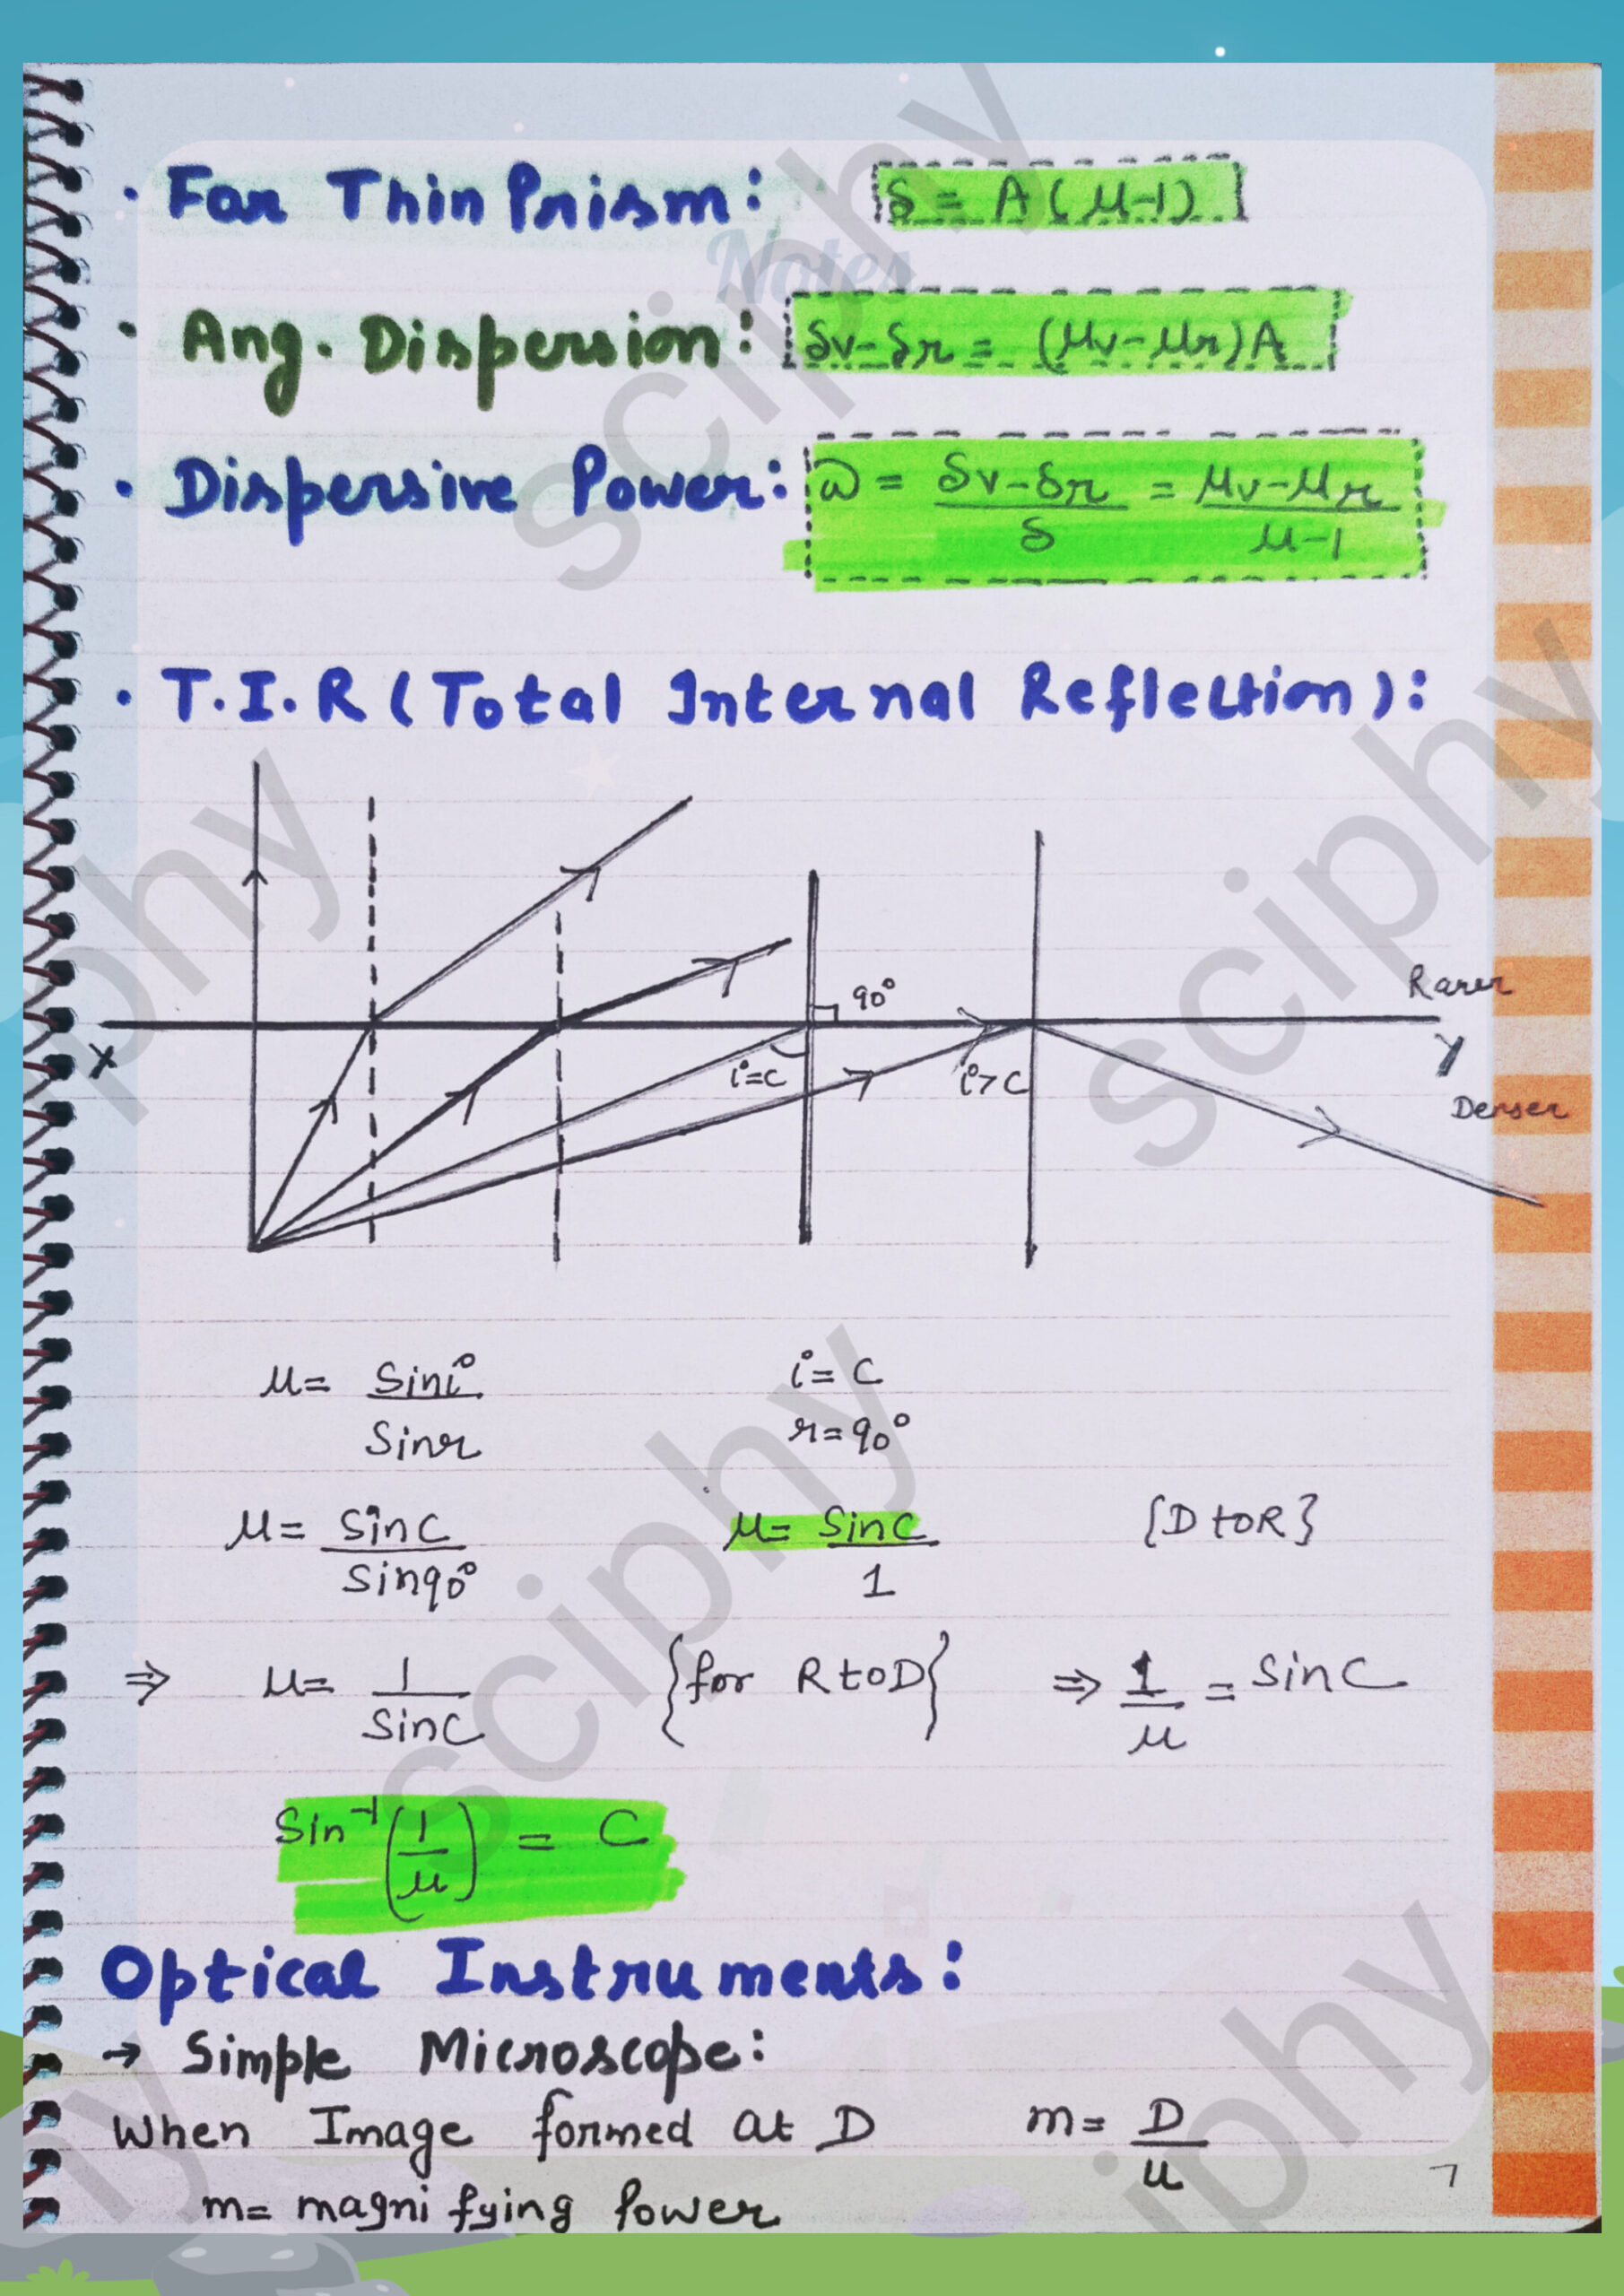 · For Thin Prism: δ = A(μ-1)
Notes
· Ang. Dispersion: δv-δr = (μv-μr)A
· Dispersive Power: ω = δv-δr/δ = μv-μr/μ-1
· T.I.R (Total Internal Reflection):
90°
Rarer
X
i=c
i>c
Y
Denser
μ= Sini/Sinr i= C
r=90°
μ= SinC/Sin90° μ= SinC/1 {D to R}
⇒ μ= 1/SinC {for R to D} ⇒ 1/μ = SinC
Sin⁻¹(1/μ) = C
Optical Instruments:
→ Simple Microscope:
When Image formed at D m= D/u
m= magnifying Power
7
sciphy
sciphy
sciphy
sciphy
phy
hy